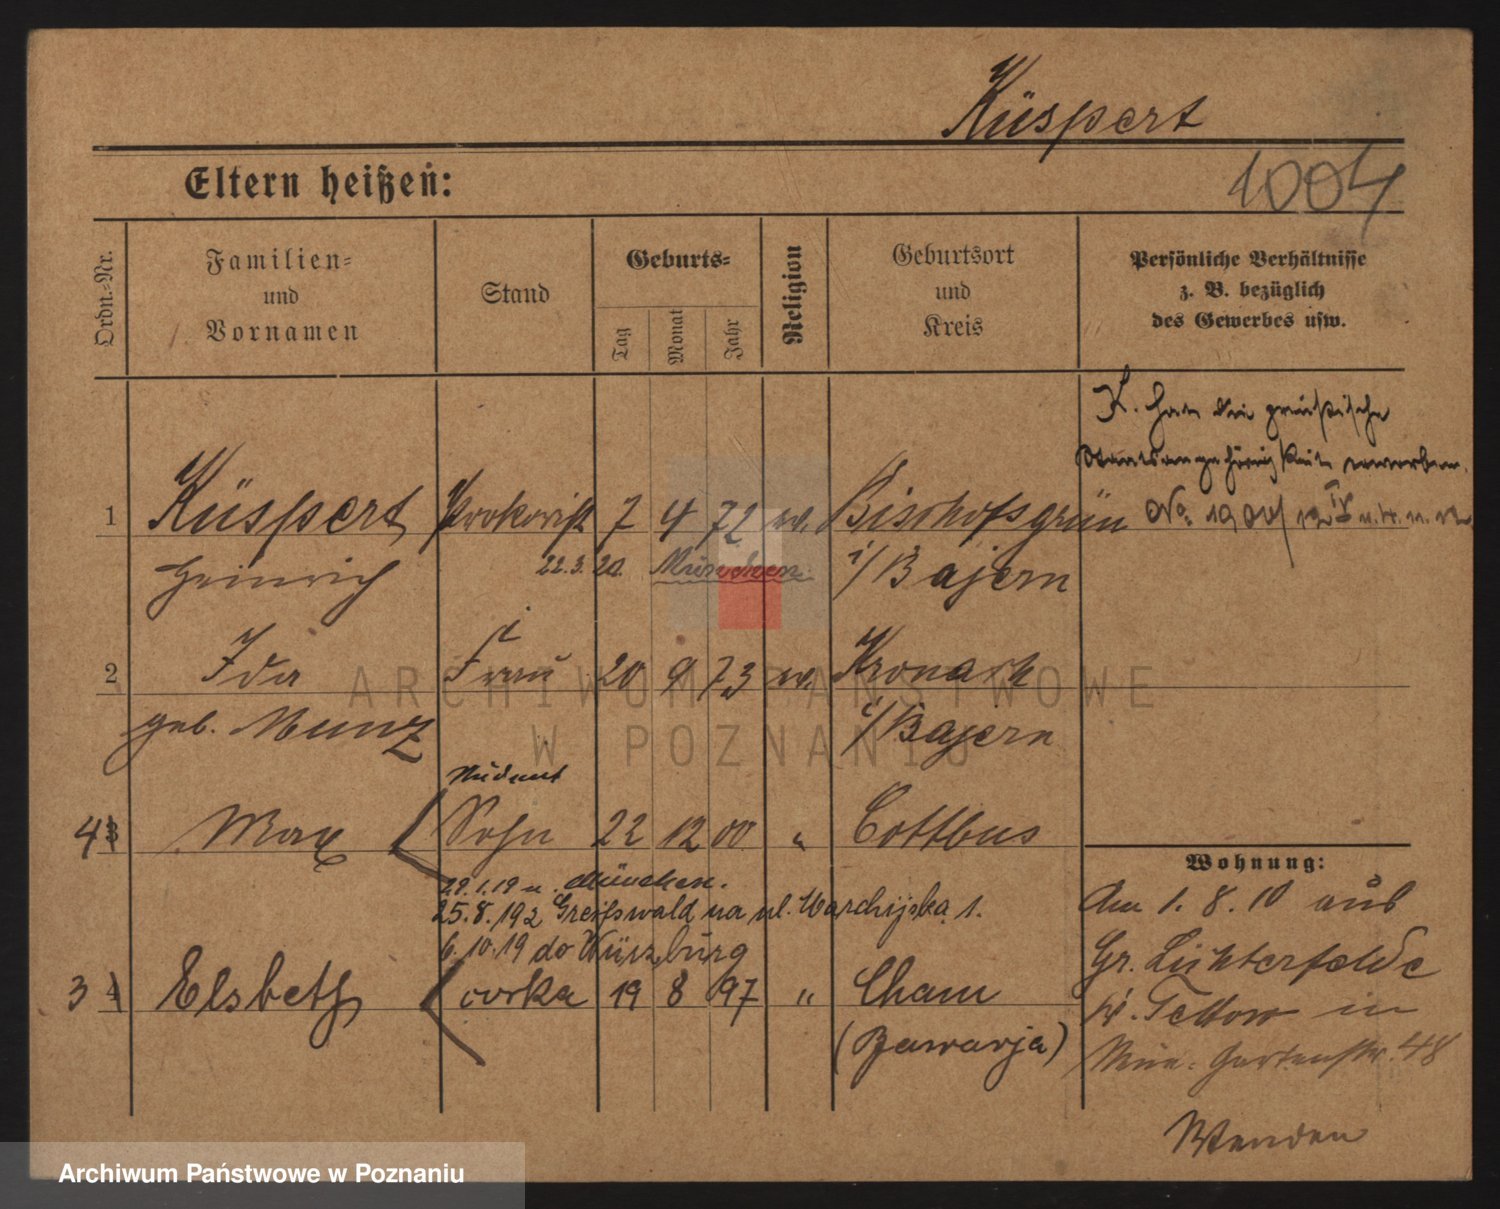 Küspert
1004
Eltern heißen:
Ordn.-Nr.
Familien-
und
Vornamen
Stand
Geburts-
Tag
Monat
Jahr
Religion
Geburtsort
und
Kreis
Persönliche Verhältnisse
z. B. bezüglich
des Gewerbes usw.
K. hat die preußische
Staatsangehörigkeit erworben.
1 Küspert Prokurist 7 4 72 ev. Bischofsgrün
Heinrich 22.3.20. München i/Bajern
2 Ida Frau 20 9 73 ev. Kronach
geb. Munz i/Bajern
Student
4 3 Max Sohn 22 12 00 " Cottbus
Wohnung:
29.1.19 n. München.
25.8.192 Greifswald na ul. Warchijska 1.
6.10.19 do Würzburg
3 4 Elsbeth corka 19 8 97 " Cham
(Bawarja)
Am 1. 8. 10 aus
Gr. Lichterfelde
Kr. Teltow in
Gartenstr. 48
Wenden
ARCHIWUM PAŃSTWOWE
W POZNANIU
Archiwum Państwowe w Poznaniu